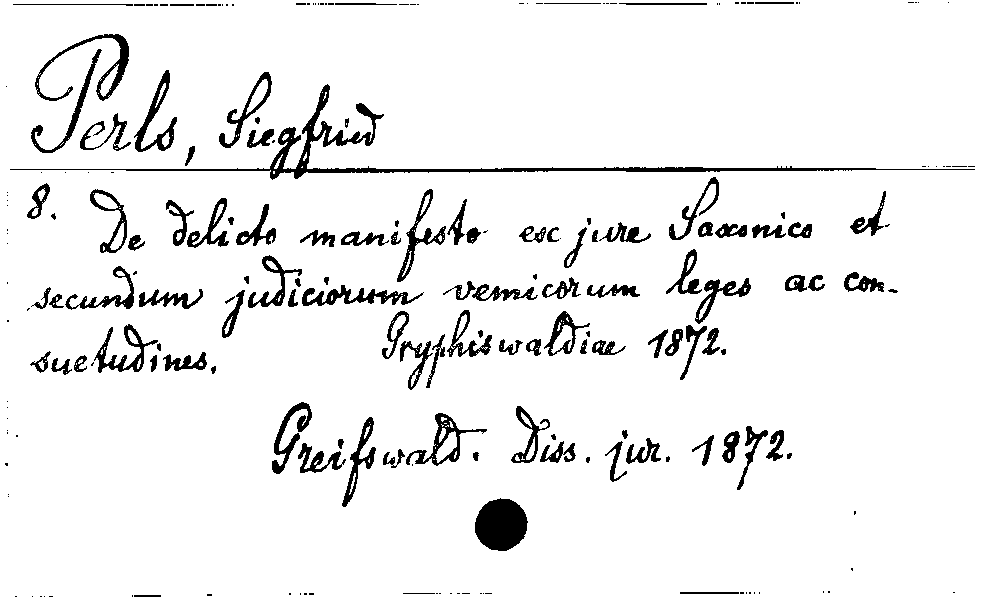 Perls, Siegfried
8. De delicto manifesto ex jure Saxonico et
secundum judiciorum vemicorum leges ac con-
suetudines. Gryphiswaldiae 1872.
Greifswald. Diss. jur. 1872.